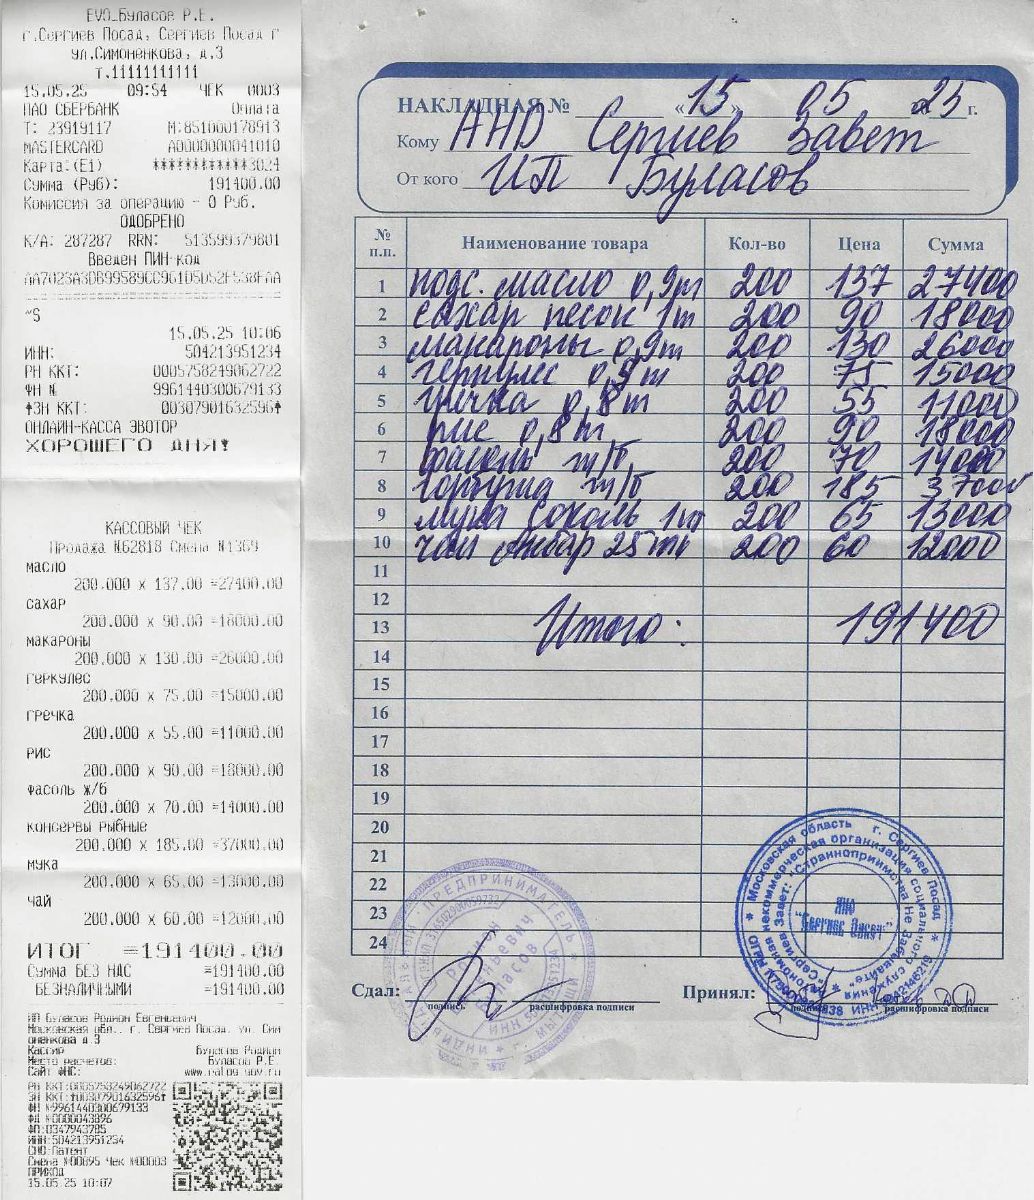 EVO_Буласов Р.Е.
г.Сергиев Посад, Сергиев Посад г
ул.Симоненкова, д.3
т.11111111111
15.05.25 09:54 ЧЕК 0003
ПАО СБЕРБАНК Оплата
Т: 23919117 М:851000178913
MASTERCARD A0000000041010
Карта:(E1) ************3024
Сумма (Руб): 191400.00
Комиссия за операцию – 0 Руб.
ОДОБРЕНО
К/А: 287287 RRN: 513599379801
Введен ПИН-код
~S
15.05.25 10:06
ИНН: 504213951234
РН ККТ: 0005758249062722
ФН № 9961440300679133
↑ЗН ККТ: 00307901632596↑
ОНЛАЙН-КАССА ЭВОТОР
ХОРОШЕГО ДНЯ!
КАССОВЫЙ ЧЕК
Продажа №62818 Смена №1369
масло
200.000 x 137.00 =27400.00
сахар
200.000 x 90.00 =18000.00
макароны
200.000 x 130.00 =26000.00
геркулес
200.000 x 75.00 =15000.00
гречка
200.000 x 55.00 =11000.00
рис
200.000 x 90.00 =18000.00
фасоль ж/б
200.000 x 70.00 =14000.00
консервы рыбные
200.000 x 185.00 =37000.00
мука
200.000 x 65.00 =13000.00
чай
200.000 x 60.00 =12000.00
ИТОГ =191400.00
Сумма БЕЗ НДС =191400.00
БЕЗНАЛИЧНЫМИ =191400.00
ИП Буласов Родион Евгеньевич
Московская обл., г. Сергиев Посад, ул. Сим
оненкова д.3
Кассир Буласов Родион
Место расчетов: Буласов Р.Е.
Сайт ФНС: www.nalog.gov.ru
РН ККТ:0005758249062722
ЗН ККТ:↑00307901632596↑
ФН №9961440300679133
ФД №0000043896
ФП:0347943785
ИНН:504213951234
СНО:Патент
Смена №00895 Чек №00003
ПРИХОД
15.05.25 10:07
НАКЛАДНАЯ № «15» 05 2025 г.
Кому АНО Сергиев Завет
От кого ИП Буласов
№ п.п. Наименование товара Кол-во Цена Сумма
1 подс. масло 0,9л 200 137 27400
2 сахар песок 1 200 90 18000
3 макароны 0,9 200 130 26000
4 геркулес 0,9 200 75 15000
5 гречка 0,8 200 55 11000
6 рис 0,8 200 90 18000
7 фасоль ж/б 200 70 14000
8 горбуша ж/б 200 185 37000
9 мука Соколь 1 200 65 13000
10 чай Акбар 25 200 60 12000
11
12
13 Итого: 191400
14
15
16
17
18
19
20
21
22
23
24
Сдал: подпись расшифровка подписи
Принял: подпись расшифровка подписи
ИНДИВИДУАЛЬНЫЙ ПРЕДПРИНИМАТЕЛЬ
Буласов
Московская область г. Сергиев Посад
Автономная некоммерческая организация социального служения
"Сергиев Завет: "Странноприимства Не Забывайте"
АНО